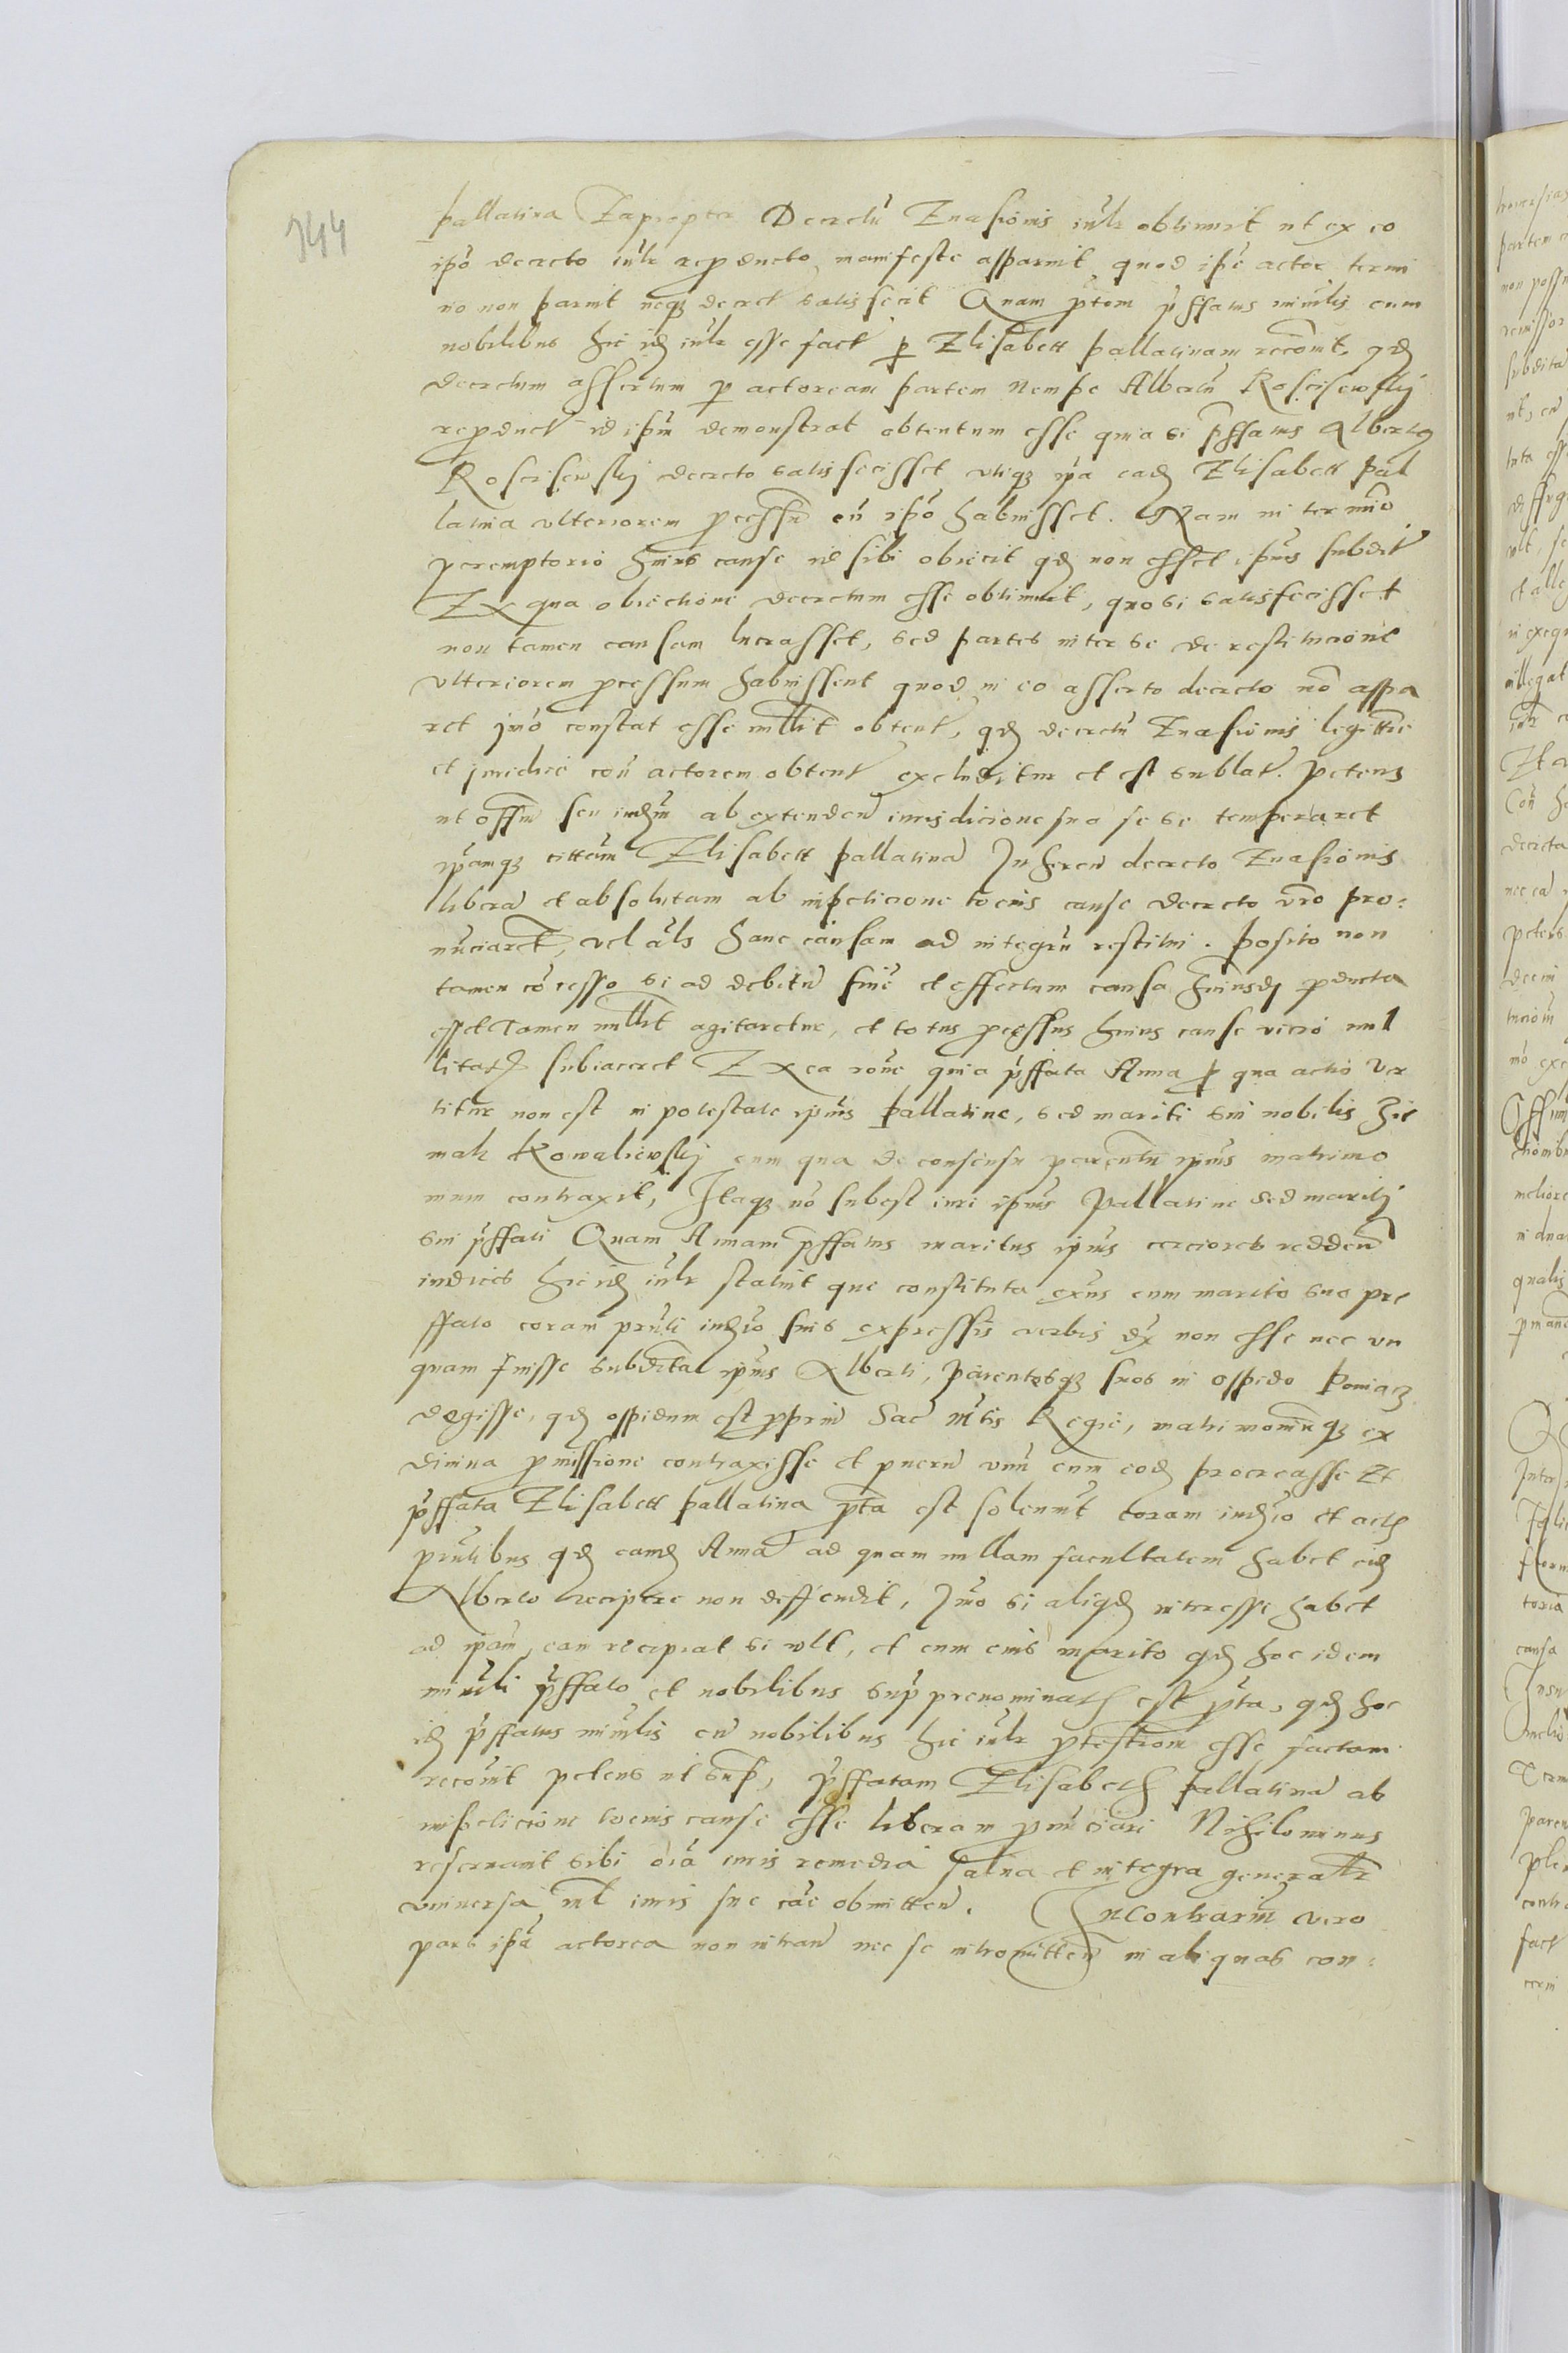 344
pallatina Eapropter Decretũ Euasionis iudr obtinuit ut ex eo
ipõ decreto iudr reproducto manifeste apparuit quod ipe actor termi
no non paruit neq decret satisfecit Quam ptem pffatus minrlis cum
nobilibus hic id iudr esse fact p Elisabett pallatinam recoñt, qd
decretum assertum p actoream partem Nempe Albertũ Roscisewskij
reproduct id ipm demonstrat obtentum esse quia si pffatus Albertg
Roscisewskij decreto satisfecisset vtiq ipa ead Elisabett pal
latina vlteriorem pcessũ cũ ipõ habuisset. Nam in termino
peremptorio huius cause id sibi obiecit qd non esset ipius subdit
Ex qua obiectione decretum esse obtinuit, quo si satisfecisset
non tamen causam lucrasset, sed partes inter se de restitucione
vlteriorem pcessum habuissent quod in eo asserto decreto nõ appa
ret jmo constat esse nullit obtent, qd decretũ Euasionis legittie
et juridice coñ actorem obtent excluditur et est sublat. petens
ut offm seu iudm ab extenden iurisdicione sua se se temperaret
ipamq cittam Elisabett pallatinã Inheren decreto Euasionis
liberã et absolutam ab impeticione tocius cause decreto vro pro:
nũciaret, vel als hanc causam ad integrũ restitui. posito non
tamen cõcesso si ad debitũ finẽ et effectum causa huiusd pducta
esset Tamen nullit agitaretur, et totus pcessus huius cause vicio nul
litat subiaceret Ex ea rone quia pffata Anna p qua actio ver
titur non est in potestate ipius pallatine, sed mariti sui nobilis Zie
mak Kowaliewskij cum qua de consensu parentũ ipius matrimo
nium contraxit, Itaq nõ subest iuri ipius Pallatine sed maritj
sui pffati Quam Annam pffatus maritus ipius cerciores redden
iudices hic id iudr statuit que constituta exns cum marito suo pre
ffato coram pnti iudio suis expressis verbis dx non esse nec vn
quam fuisse subdita ipius Alberti, parentesq suos in oppido Poniacz
degisse, qd oppidum est propriũ Sac Mtis Regie, matrimoniũq ex
diuina pmissione contraxisse et puerũ vnũ cum eod procreasse Et
pffata Elisabett pallatina pta est solennit coram iudio et actis
pntibus qd eamd Annã ad quam nullam facultatem habet eid
Alberto recipere non deffendit, Imo si aliqd interesse habet
ad ipam, eam recipiat si vlt, et cum eius marito qd hoc idem
minrli pffato et nobilibus sup prenominatis est pta, qd hoc
id pffatus minrlis cũ nobilibus hic iudr ptestiom esse factam
recoñit petens ut sup, pffatam Elisabeth pallatinã ab
impeticione tocius cause esse liberam pnũciari Nihilominus
reseruauit sibi oia iuris remedia salua et integra generalr
vniuersa nil iuris sue cae obmitten. Incontrariũ vero
pars ipa actorea non intran nec se intromitten in aliquas con: